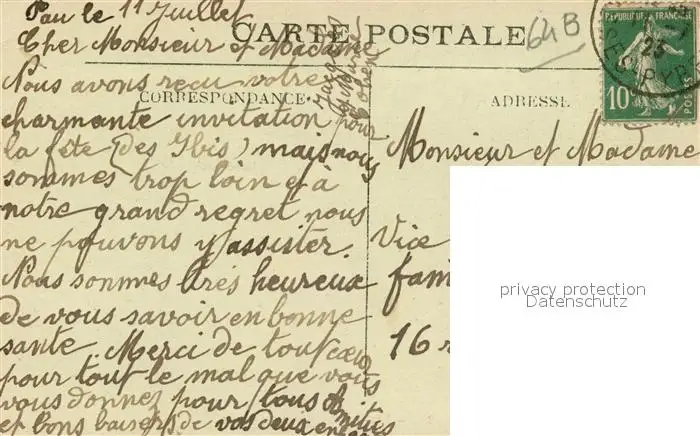 Pau le 11 Juillet
CARTE POSTALE
64B
Cher Monsieur et Madame
Nous avons reçu votre
CORRESPONDANCE
charmante invitation pour
la fête (des Ibis) mais nous
sommes trop loin et à
notre grand regret nous
ne pouvons y assister.
Nous sommes très heureux
de vous savoir en bonne
santé. Merci de tout cœur
pour tout le mal que vous
vous donnez pour tous Amitiés
et bons baisers de vos deux
ADRESSE
REPUBLIQUE FRANCAISE
10
POSTES
23
Monsieur et Madame
Vice
fam
16 r
privacy protection
Datenschutz